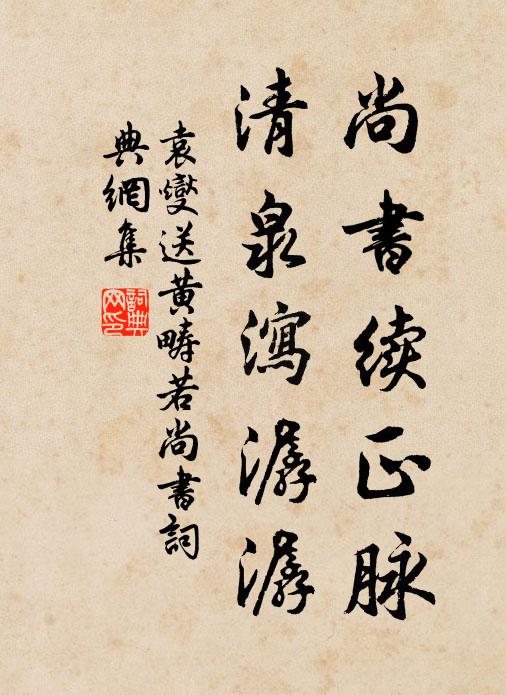 尚書續正脉
清泉瀉潺潺
袁燮送黄疇若尚書詞
典網集
詞典网印